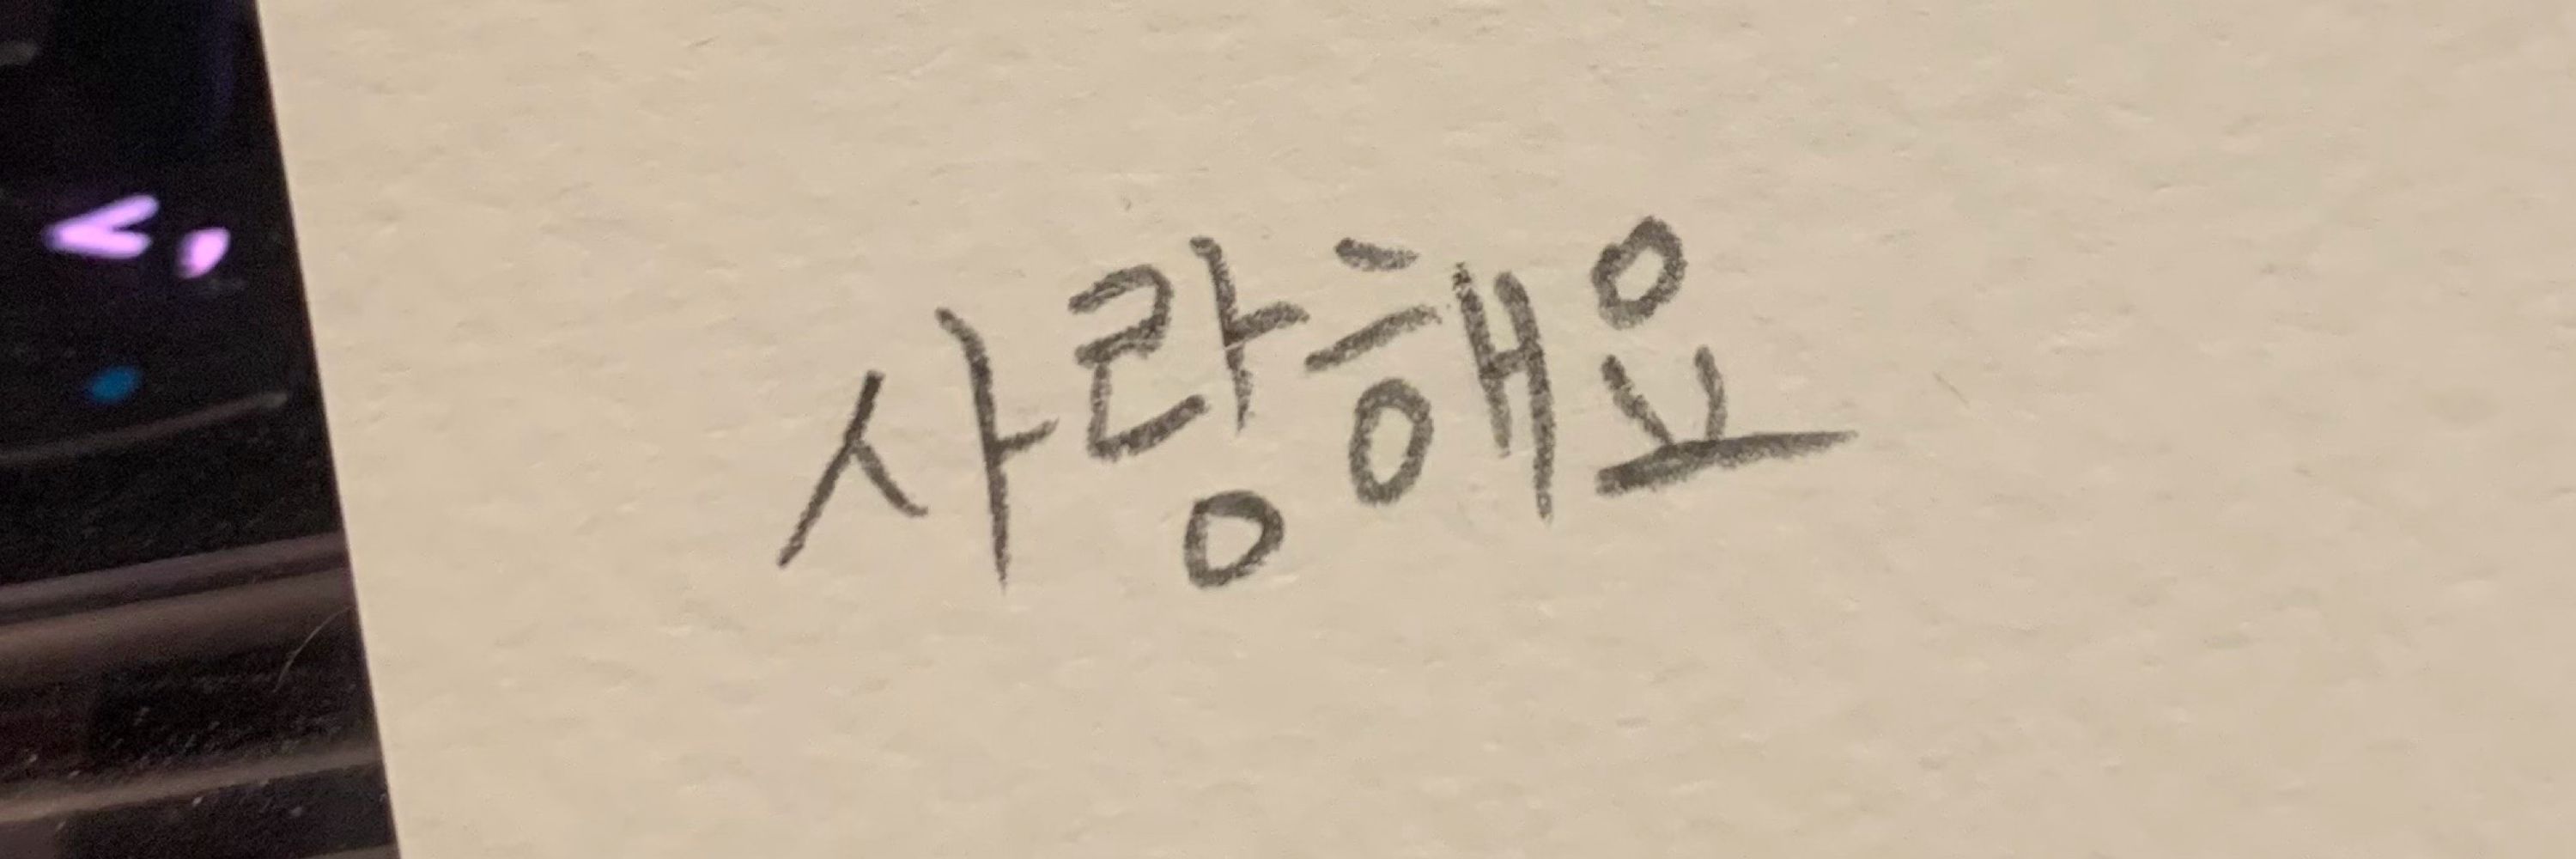 사랑해요
<,